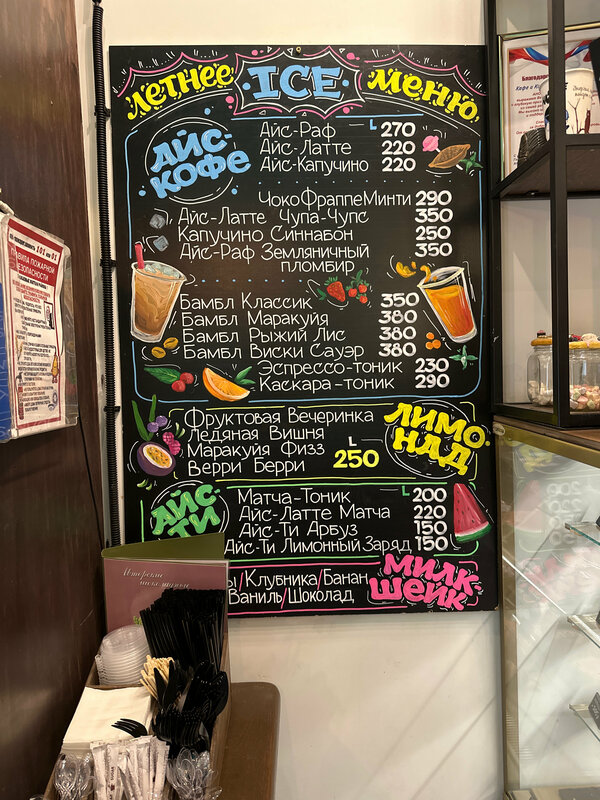 ЛЕТНЕЕ ICE МЕНЮ
АЙС-
КОФЕ
Айс-Раф L 270
Айс-Латте 220
Айс-Капучино 220
ЧокоФраппеМинти 290
Айс-Латте Чупа-Чупс 350
Капучино Синнабон 250
Айс-Раф Земляничный 350
пломбир
Бамбл Классик 350
Бамбл Маракуйя 380
Бамбл Рыжий Лис 380
Бамбл Виски Сауэр 380
Эспрессо-тоник 230
Каскара-тоник 290
ЛИМО-
НАД
Фруктовая Вечеринка
Ледяная Вишня
Маракуйя Физз L
Верри Берри 250
АЙС-
ТИ
Матча-Тоник L 200
Айс-Латте Матча 220
Айс-Ти Арбуз 150
Айс-Ти Лимонный Заряд 150
МИЛК
ШЕЙК
ы/Клубника/Банан
Ваниль/Шоколад
Авторские
101 или 01
ПОЖАРНОЙ
БЕЗОПАСНОСТИ
Благодар